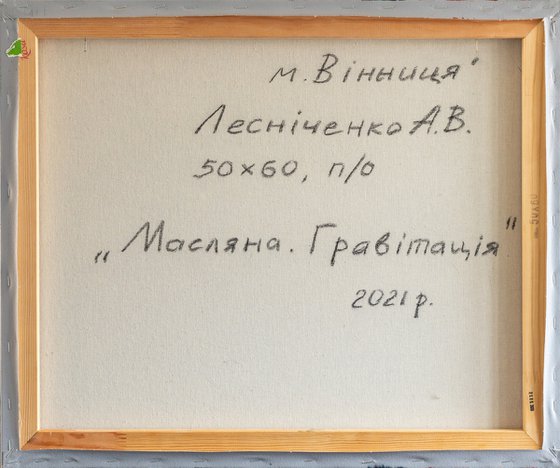 м. Вінниця
Лесніченко А.В.
50х60, п/о
„Масляна. Гравітація"
2021 р.